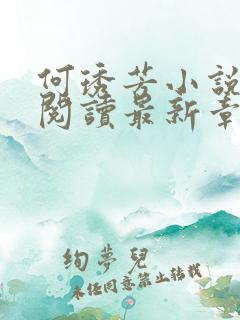 何琇芳小說
閱讀最新章
絢夢兒
未经同意禁止转载